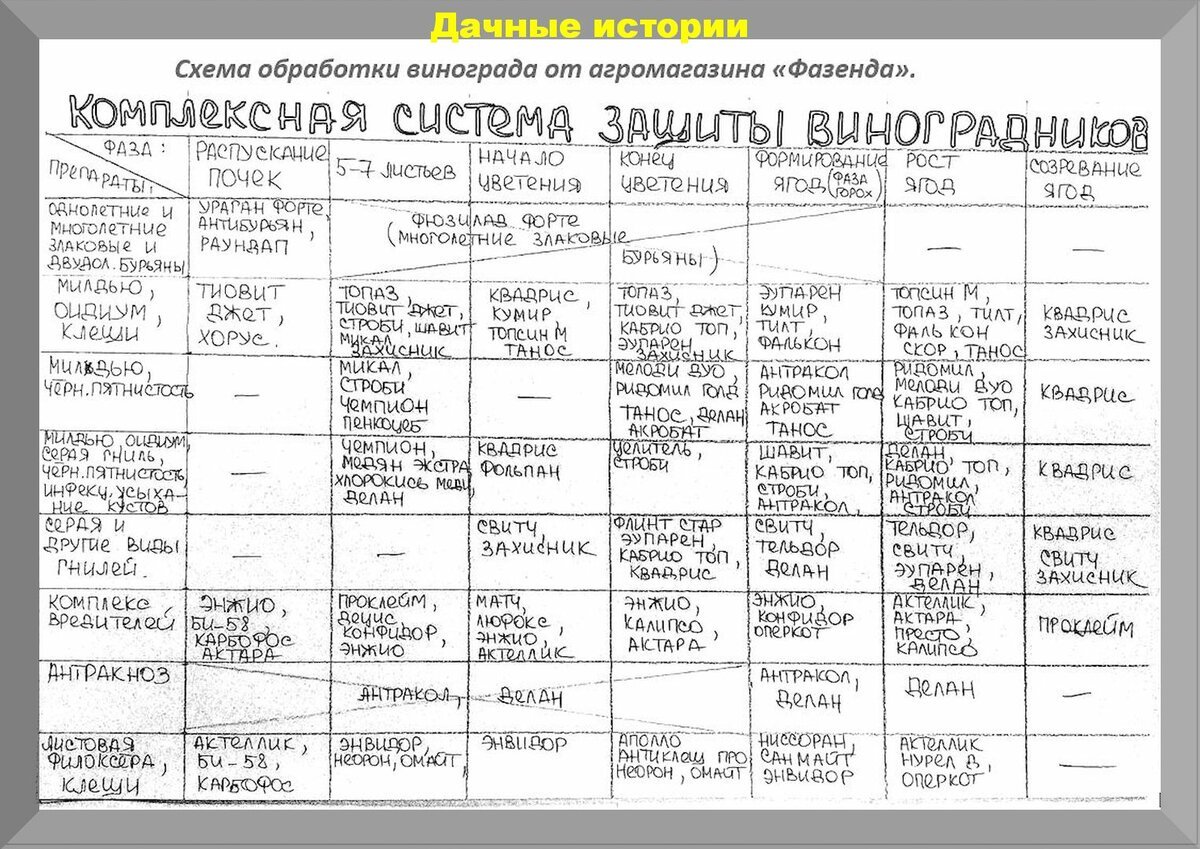 Дачные истории
Схема обработки винограда от агромагазина «Фазенда».
КОМПЛЕКСНАЯ СИСТЕМА ЗАЩИТЫ ВИНОГРАДНИКОВ
ФАЗА:
ПРЕПАРАТЫ:
РАСПУСКАНИЕ
ПОЧЕК
5-7 ЛИСТЬЕВ
НАЧАЛО
ЦВЕТЕНИЯ
КОНЕЦ
ЦВЕТЕНИЯ
ФОРМИРОВАНИЕ
ЯГОД (ФАЗА
ГОРОХ)
РОСТ
ЯГОД
СОЗРЕВАНИЕ
ЯГОД
ОДНОЛЕТНИЕ И
МНОГОЛЕТНИЕ
ЗЛАКОВЫЕ И
ДВУДОЛ. БУРЬЯНЫ
УРАГАН ФОРТЕ,
АНТИБУРЬЯН,
РАУНДАП
ФЮЗИЛАД ФОРТЕ
(МНОГОЛЕТНИЕ ЗЛАКОВЫЕ
БУРЬЯНЫ)
—
—
МИЛДЬЮ,
ОИДИУМ,
КЛЕЩИ
ТИОВИТ
ДЖЕТ,
ХОРУС.
ТОПАЗ,
ТИОВИТ ДЖЕТ,
СТРОБИ, ШАВИТ
МИКАЛ
ЗАХИСНИК
КВАДРИС,
КУМИР
ТОПСИН М
ТАНОС
ТОПАЗ,
ТИОВИТ ДЖЕТ,
КАБРИО ТОП,
ЭУПАРЕН
ЗАХИСНИК
ЭУПАРЕН
КУМИР,
ТИЛТ,
ФАЛЬКОН
ТОПСИН М,
ТОПАЗ, ТИЛТ,
ФАЛЬКОН
СКОР, ТАНОС
КВАДРИС
ЗАХИСНИК
МИЛДЬЮ,
ЧЕРН. ПЯТНИСТОСТЬ
—
МИКАЛ,
СТРОБИ
ЧЕМПИОН
ПЕНКОЦЕБ
—
МЕЛОДИ ДУО,
РИДОМИЛ ГОЛД
ТАНОС, ДЕЛАН
АКРОБАТ
АНТРАКОЛ
РИДОМИЛ ГОЛД
АКРОБАТ
ТАНОС
РИДОМИЛ,
МЕЛОДИ ДУО
КАБРИО ТОП,
ШАВИТ,
СТРОБИ
КВАДРИС
МИЛДЬЮ, ОИДИУМ,
СЕРАЯ ГНИЛЬ,
ЧЕРН. ПЯТНИСТОСТЬ
ИНФЕКЦ. УСЫХА-
НИЕ КУСТОВ
—
ЧЕМПИОН,
МЕДЯН ЭКСТРА
ХЛОРОКИСЬ МЕДИ,
ДЕЛАН
КВАДРИС
ФОЛЬПАН
ЦЕЛИТЕЛЬ,
СТРОБИ
ШАВИТ,
КАБРИО ТОП,
СТРОБИ,
АНТРАКОЛ,
ДЕЛАН
КАБРИО ТОП,
РИДОМИЛ,
АНТРАКОЛ
СТРОБИ
КВАДРИС
СЕРАЯ И
ДРУГИЕ ВИДЫ
ГНИЛЕЙ.
—
—
СВИТЧ,
ЗАХИСНИК
ФЛИНТ СТАР
ЭУПАРЕН,
КАБРИО ТОП,
КВАДРИС
СВИТЧ,
ТЕЛЬДОР
ДЕЛАН
ТЕЛЬДОР,
СВИТЧ,
ЭУПАРЕН,
ДЕЛАН
КВАДРИС
СВИТЧ
ЗАХИСНИК
КОМПЛЕКС
ВРЕДИТЕЛЕЙ
ЭНЖИО,
БИ-58,
КАРБОФОС
АКТАРА
ПРОКЛЕЙМ,
ДЕЦИС
КОНФИДОР,
ЭНЖИО
МАТЧ,
ЛЮФОКС,
ЭНЖИО,
АКТЕЛЛИК
ЭНЖИО,
КАЛИПСО,
АКТАРА
ЭНЖИО,
КОНФИДОР
ОПЕРКОТ
АКТЕЛЛИК,
АКТАРА,
ПРЕСТО,
КАЛИПСО
ПРОКЛЕЙМ
АНТРАКНОЗ
АНТРАКОЛ,
ДЕЛАН
АНТРАКОЛ,
ДЕЛАН
ДЕЛАН
—
ЛИСТОВАЯ
ФИЛОКСЕРА,
КЛЕЩИ
АКТЕЛЛИК,
БИ-58,
КАРБОФОС
ЭНВИДОР,
НЕОРОН, ОМАЙТ,
ЭНВИДОР
АПОЛЛО
АНТИКЛЕЩ ПРО
НЕОРОН, ОМАЙТ
НИССОРАН,
САНМАЙТ
ЭНВИДОР
АКТЕЛЛИК
НУРЕЛ Д,
ОПЕРКОТ
—